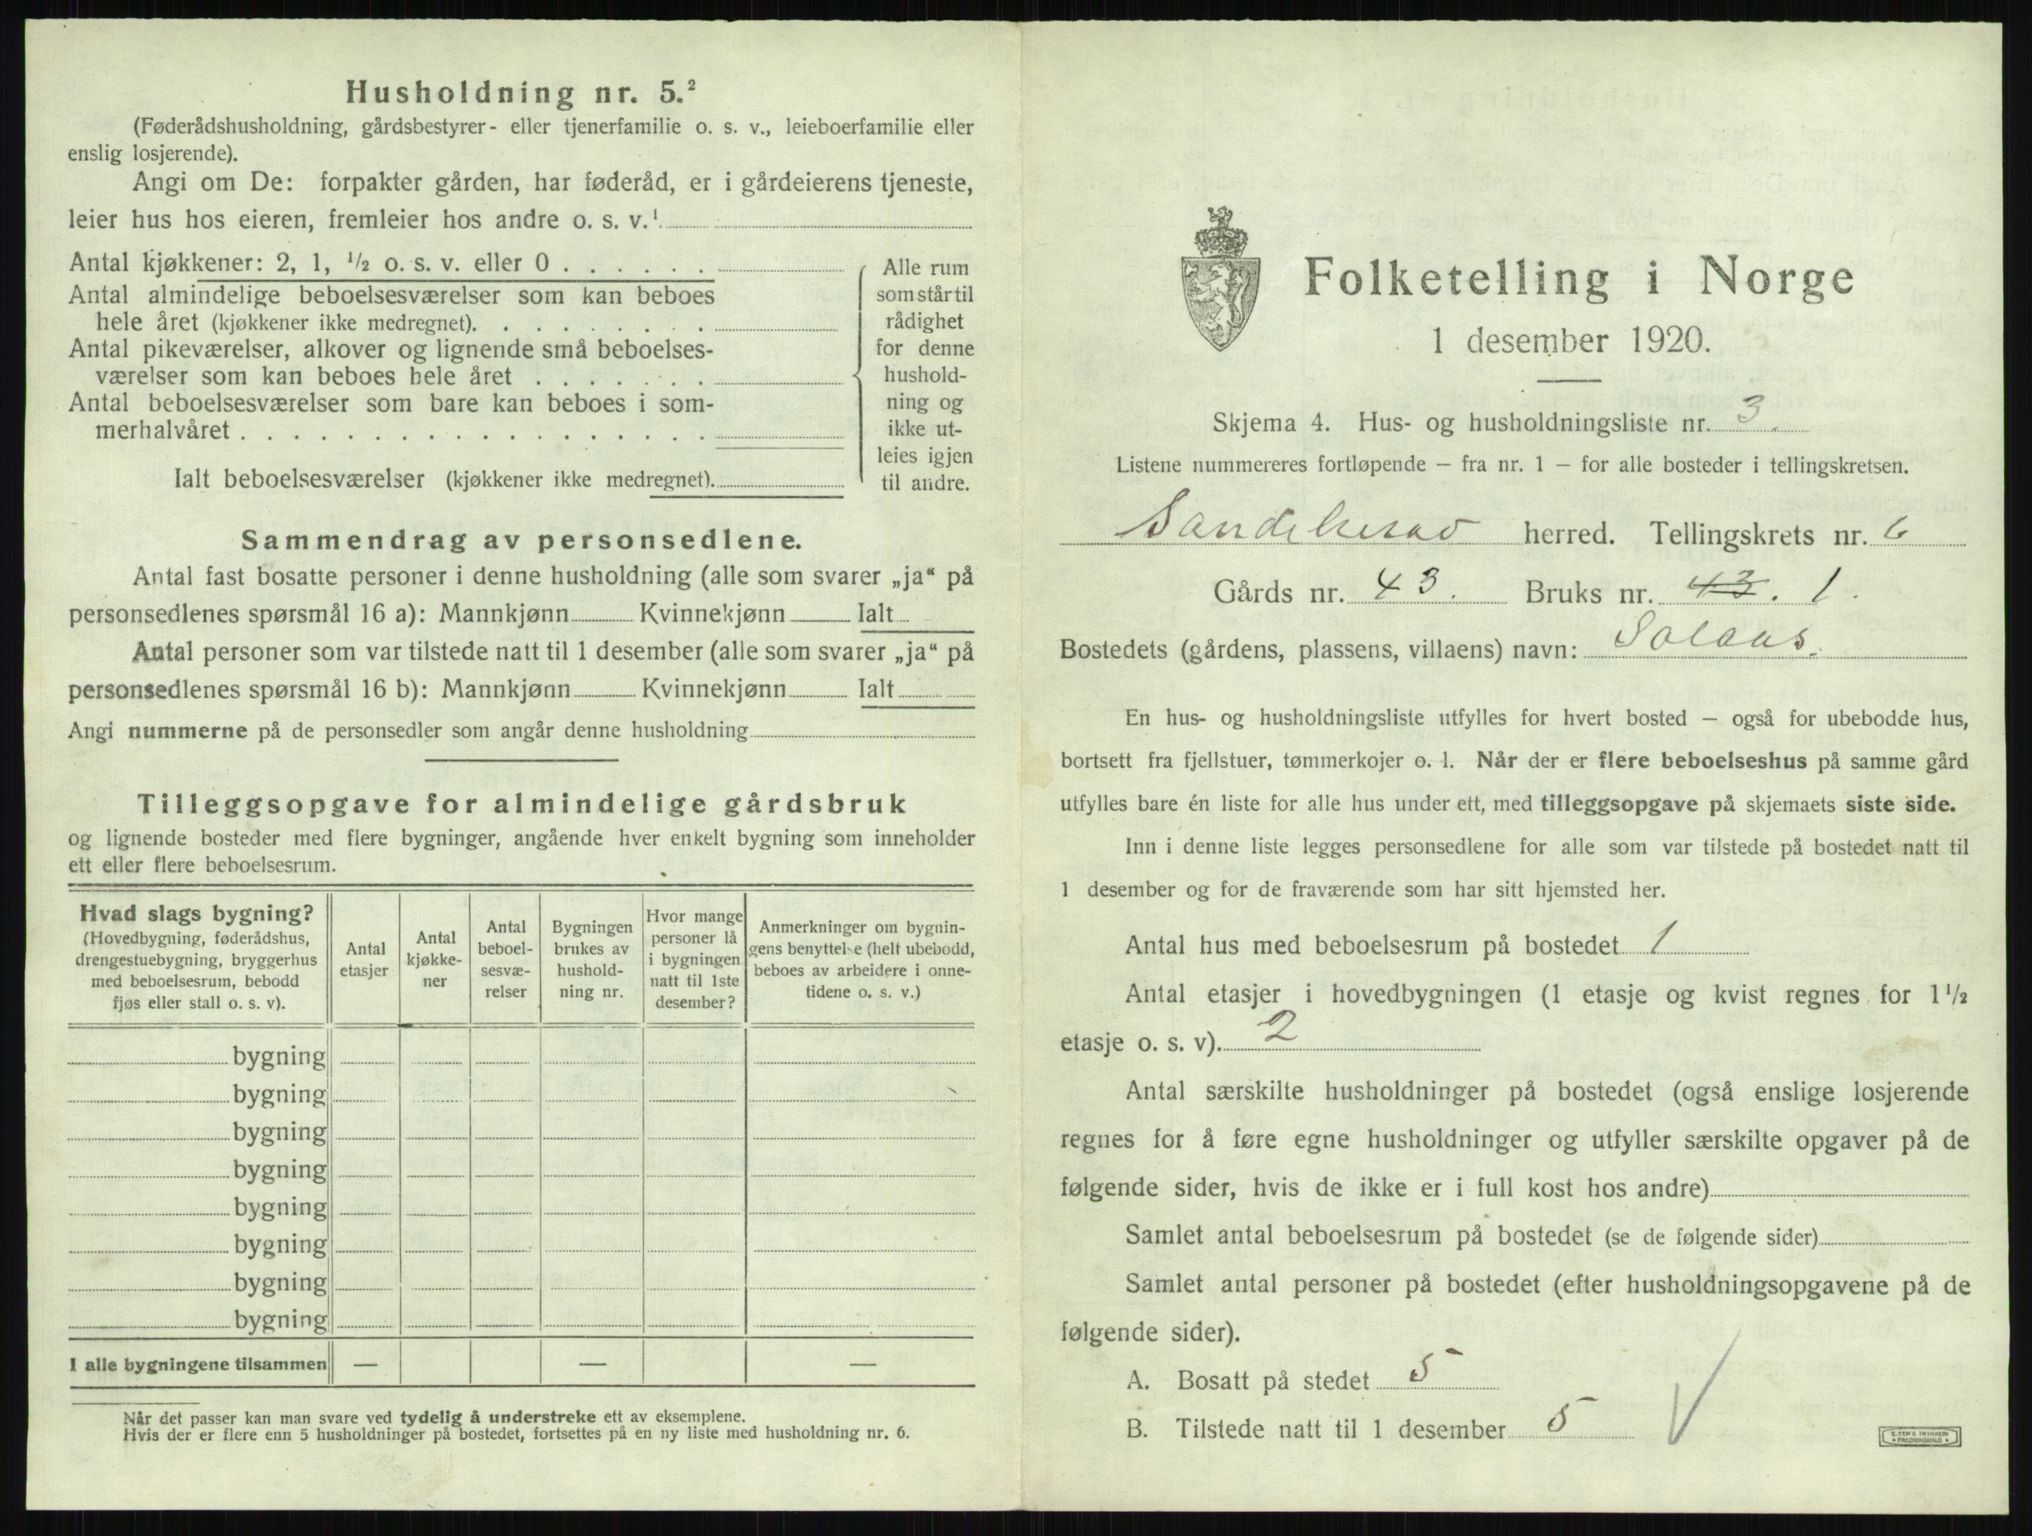 Husholdning nr. 5.²
(Føderådshusholdning, gårdsbestyrer- eller tjenerfamilie o. s. v., leieboerfamilie eller
enslig losjerende).
Angi om De: forpakter gården, har føderåd, er i gårdeierens tjeneste,
leier hus hos eieren, fremleier hos andre o. s. v.¹
Antal kjøkkener: 2, 1, ½ o. s. v. eller 0 . . . . . .
Antal almindelige beboelsesværelser som kan beboes
hele året (kjøkkener ikke medregnet). . . . . . . . .
Antal pikeværelser, alkover og lignende små beboelses-
værelser som kan beboes hele året . . . . . . .
Antal beboelsesværelser som bare kan beboes i som-
merhalvåret . . . . . . . . . . . . . . . . . .
Ialt beboelsesværelser (kjøkkener ikke medregnet).
Alle rum
som står til
rådighet
for denne
hushold-
ning og
ikke ut-
leies igjen
til andre.
Sammendrag av personsedlene.
Antal fast bosatte personer i denne husholdning (alle som svarer „ja“ på
personsedlenes spørsmål 16 a): Mannkjønn Kvinnekjønn Ialt
Antal personer som var tilstede natt til 1 desember (alle som svarer „ja“ på
personsedlenes spørsmål 16 b): Mannkjønn Kvinnekjønn Ialt
Angi nummerne på de personsedler som angår denne husholdning
Tilleggsopgave for almindelige gårdsbruk
og lignende bosteder med flere bygninger, angående hver enkelt bygning som inneholder
ett eller flere beboelsesrum.
Hvad slags bygning?
(Hovedbygning, føderådshus,
drengestuebygning, bryggerhus
med beboelsesrum, bebodd
fjøs eller stall o. s. v).
Antal
etasjer
Antal
kjøkke-
ner
Antal
beboel-
sesvæ-
relser
Bygningen
brukes av
hushold-
ning nr.
Hvor mange
personer lå
i bygningen
natt til 1ste
desember?
Anmerkninger om bygnin-
gens benyttelse (helt ubebodd,
beboes av arbeidere i onne-
tidene o. s. v.)
bygning
bygning
bygning
bygning
bygning
bygning
bygning
bygning
I alle bygningene tilsammen — — —
Når det passer kan man svare ved tydelig å understreke ett av eksemplene.
Hvis der er flere enn 5 husholdninger på bostedet, fortsettes på en ny liste med husholdning nr. 6.
Folketelling i Norge
1 desember 1920.
Skjema 4. Hus- og husholdningsliste nr. 3.
Listene nummereres fortløpende – fra nr. 1 – for alle bosteder i tellingskretsen.
Sandeherad herred. Tellingskrets nr. 6
Gårds nr. 43. Bruks nr. 43. 1.
Bostedets (gårdens, plassens, villaens) navn: Solaas.
En hus- og husholdningsliste utfylles for hvert bosted – også for ubebodde hus,
bortsett fra fjellstuer, tømmerkojer o. l. Når der er flere beboelseshus på samme gård
utfylles bare én liste for alle hus under ett, med tilleggsopgave på skjemaets siste side.
Inn i denne liste legges personsedlene for alle som var tilstede på bostedet natt til
1 desember og for de fraværende som har sitt hjemsted her.
Antal hus med beboelsesrum på bostedet 1
Antal etasjer i hovedbygningen (1 etasje og kvist regnes for 1½
etasje o. s. v). 2
Antal særskilte husholdninger på bostedet (også enslige losjerende
regnes for å føre egne husholdninger og utfyller særskilte opgaver på de
følgende sider, hvis de ikke er i full kost hos andre)
Samlet antal beboelsesrum på bostedet (se de følgende sider)
Samlet antal personer på bostedet (efter husholdningsopgavene på de
følgende sider).
A. Bosatt på stedet 5
B. Tilstede natt til 1 desember 5